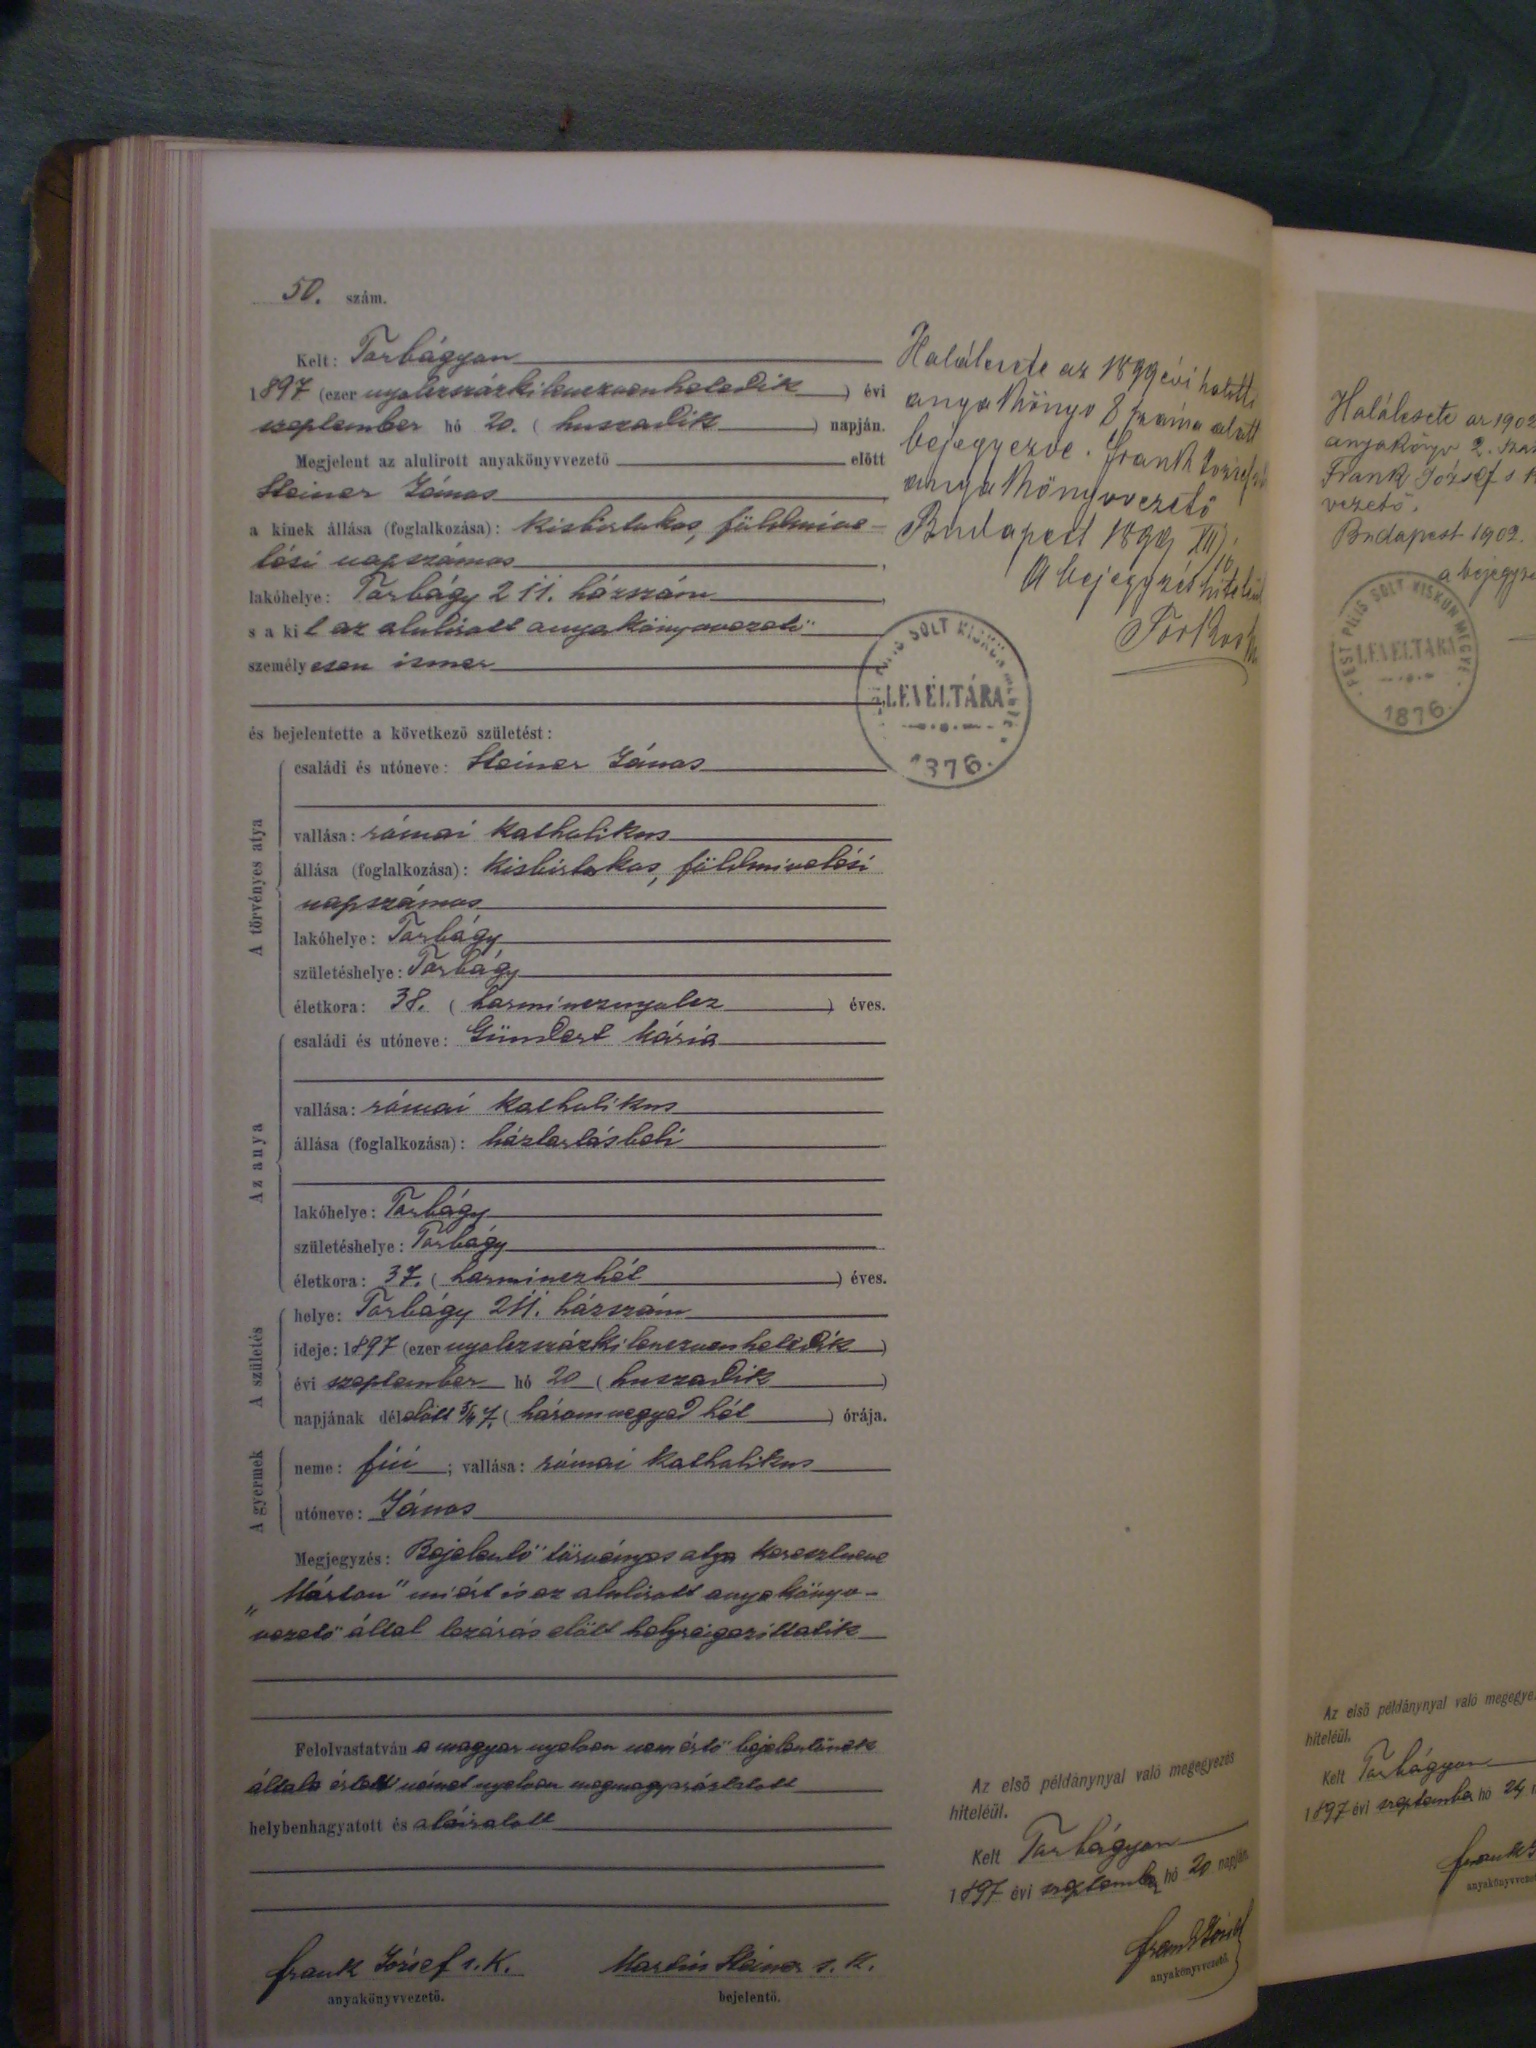 50. szám.
Kelt: Torbágyon
1897 (ezer nyolczszázkilenczvenhetedik) évi
szeptember hó 20. (huszadik) napján.
Megjelent az alulirott anyakönyvvezető előtt
Steiner János
a kinek állása (foglalkozása): kisbirtokos, földmive-
lési napszámos,
lakóhelye: Torbágy 211. házszám,
s a kit az alulirott anyakönyvvezető
személyesen ismer
és bejelentette a következő születést:
A törvényes atya
családi és utóneve: Steiner János
vallása: római katholikus
állása (foglalkozása): kisbirtokos, földmivelési
napszámos
lakóhelye: Torbágy
születéshelye: Torbágy
életkora: 38. (harmincznyolcz) éves.
Az anya
családi és utóneve: Gündert Mária
vallása: római katholikus
állása (foglalkozása): háztartásbeli
lakóhelye: Torbágy
születéshelye: Torbágy
életkora: 37. (harminczhét) éves.
A születés
helye: Torbágy 211. házszám
ideje: 1897 (ezer nyolczszázkilenczvenhetedik)
évi szeptember hó 20 (huszadik)
napjának délelőtt 3/4 7. (háromnegyed hét) órája.
A gyermek
neme: fiú; vallása: római katholikus
utóneve: János
Megjegyzés: Bejelentő törvényes atya keresztneve
„Márton" miért is az alulirott anyakönyv-
vezető által lezárás előtt helyreigazittatik
Felolvastatván a magyar nyelven nem értő bejelentőnek
általa értett német nyelven megmagyaráztatott
helybenhagyatott és aláiratott
Frank József s. k.
anyakönyvvezető.
Martin Steiner s. k.
bejelentő.
Halálesete az 1899 évi halotti
anyakönyv 8 száma alatt
bejegyezve. Frank József sk
anyakönyvvezető
Budapest 1899 XII/
A bejegyzés hiteléül
PEST PILIS SOLT KISKUN MEGYE
LEVÉLTÁRA
1876.
Az első példánynyal való megegyezés
hiteléül.
Kelt Torbágyon
1897 évi szeptember hó 20 napján.
Frank József
anyakönyvvezető.
Halálesete az 1902
anyakönyv 2.
Frank József s k
vezető.
Budapest 1902.
a
PEST PILIS SOLT KISKUN MEGYE
LEVÉLTÁRA
1876.
Az első példánynyal való
hiteléül.
Kelt Torbágyon
1897 évi szeptember hó 24